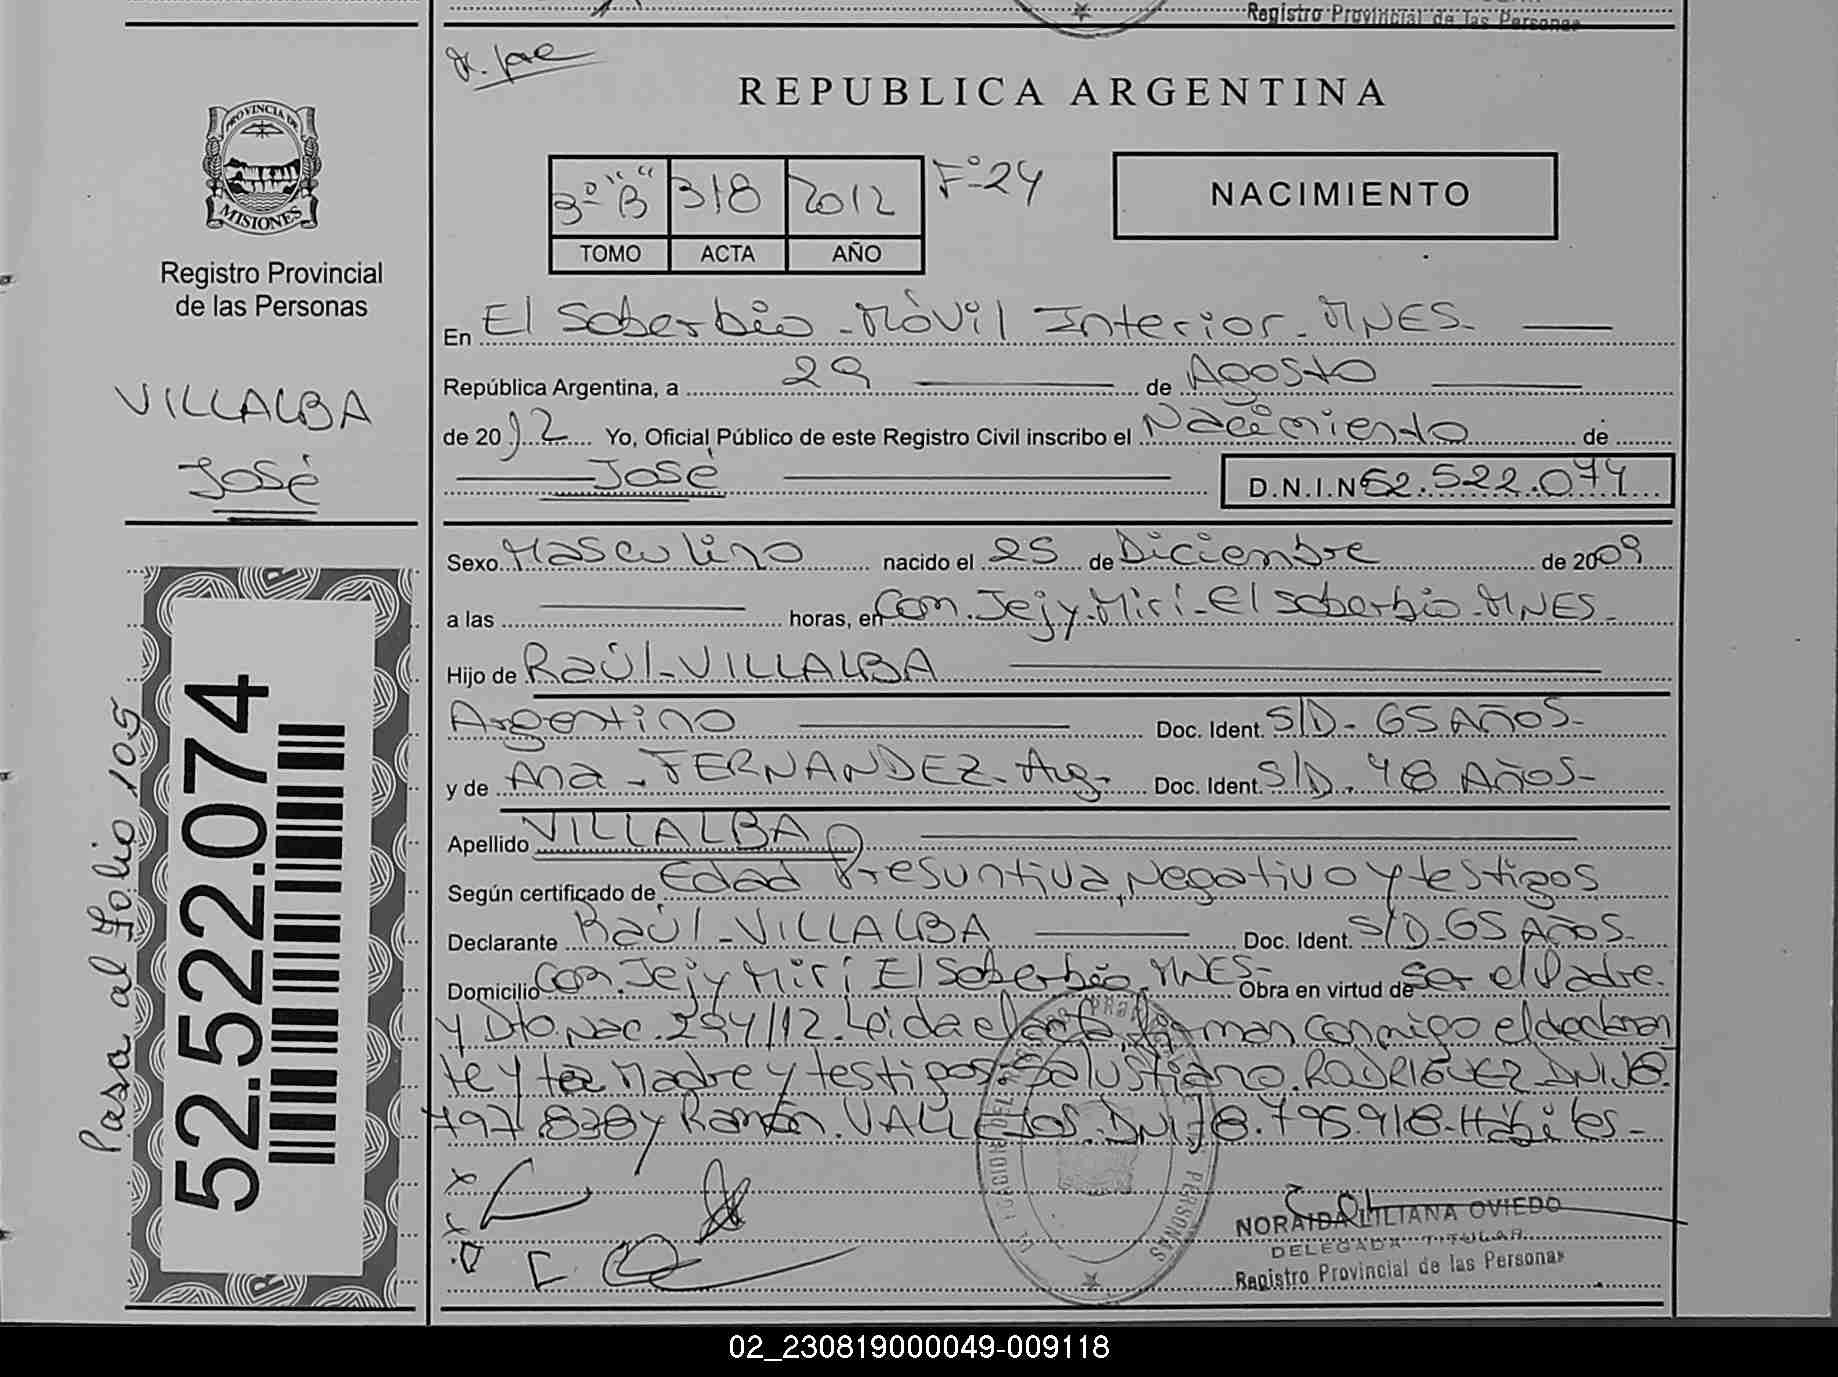 Registro Provincial de las Personas
REPUBLICA ARGENTINA
PROVINCIA DE
MISIONES
Registro Provincial
de las Personas
VILLALBA
José
52.522.074
Pasa al Folio 105
3º "B" 318 2012 Fº 24
TOMO ACTA AÑO
NACIMIENTO
En El Soberbio - Móvil Interior - MNES.
República Argentina, a 29 de Agosto
de 2012 Yo, Oficial Público de este Registro Civil inscribo el Nacimiento de
José D.N.I.Nº 52.522.074
Sexo Masculino nacido el 25 de Diciembre de 2009
a las horas, en Com. Jejy Miri - El Soberbio - MNES -
Hijo de Raúl - VILLALBA
Argentino Doc. Ident. S/D - 65 Años -
y de Ana - FERNANDEZ - Arg. Doc. Ident. S/D. 48 Años -
Apellido VILLALBA
Según certificado de Edad Presuntiva, Negativo y testigos
Declarante Raúl - VILLALBA Doc. Ident. S/D - 65 Años -
Domicilio Com. Jejy Miri El Soberbio. MNES - Obra en virtud de Ser el Padre.
y Dto. Nac. 294/12. Leida el acta, firman conmigo el declaran
te y la Madre y testigos: Salustiano. RODRIGUEZ DNI. 18.
797.838 y Ramón. VALLEJOS. DNI 18.795918 - Hábiles -
NORAIDA LILIANA OVIEDO
DELEGADA TITULAR
Registro Provincial de las Personas
02_230819000049-009118